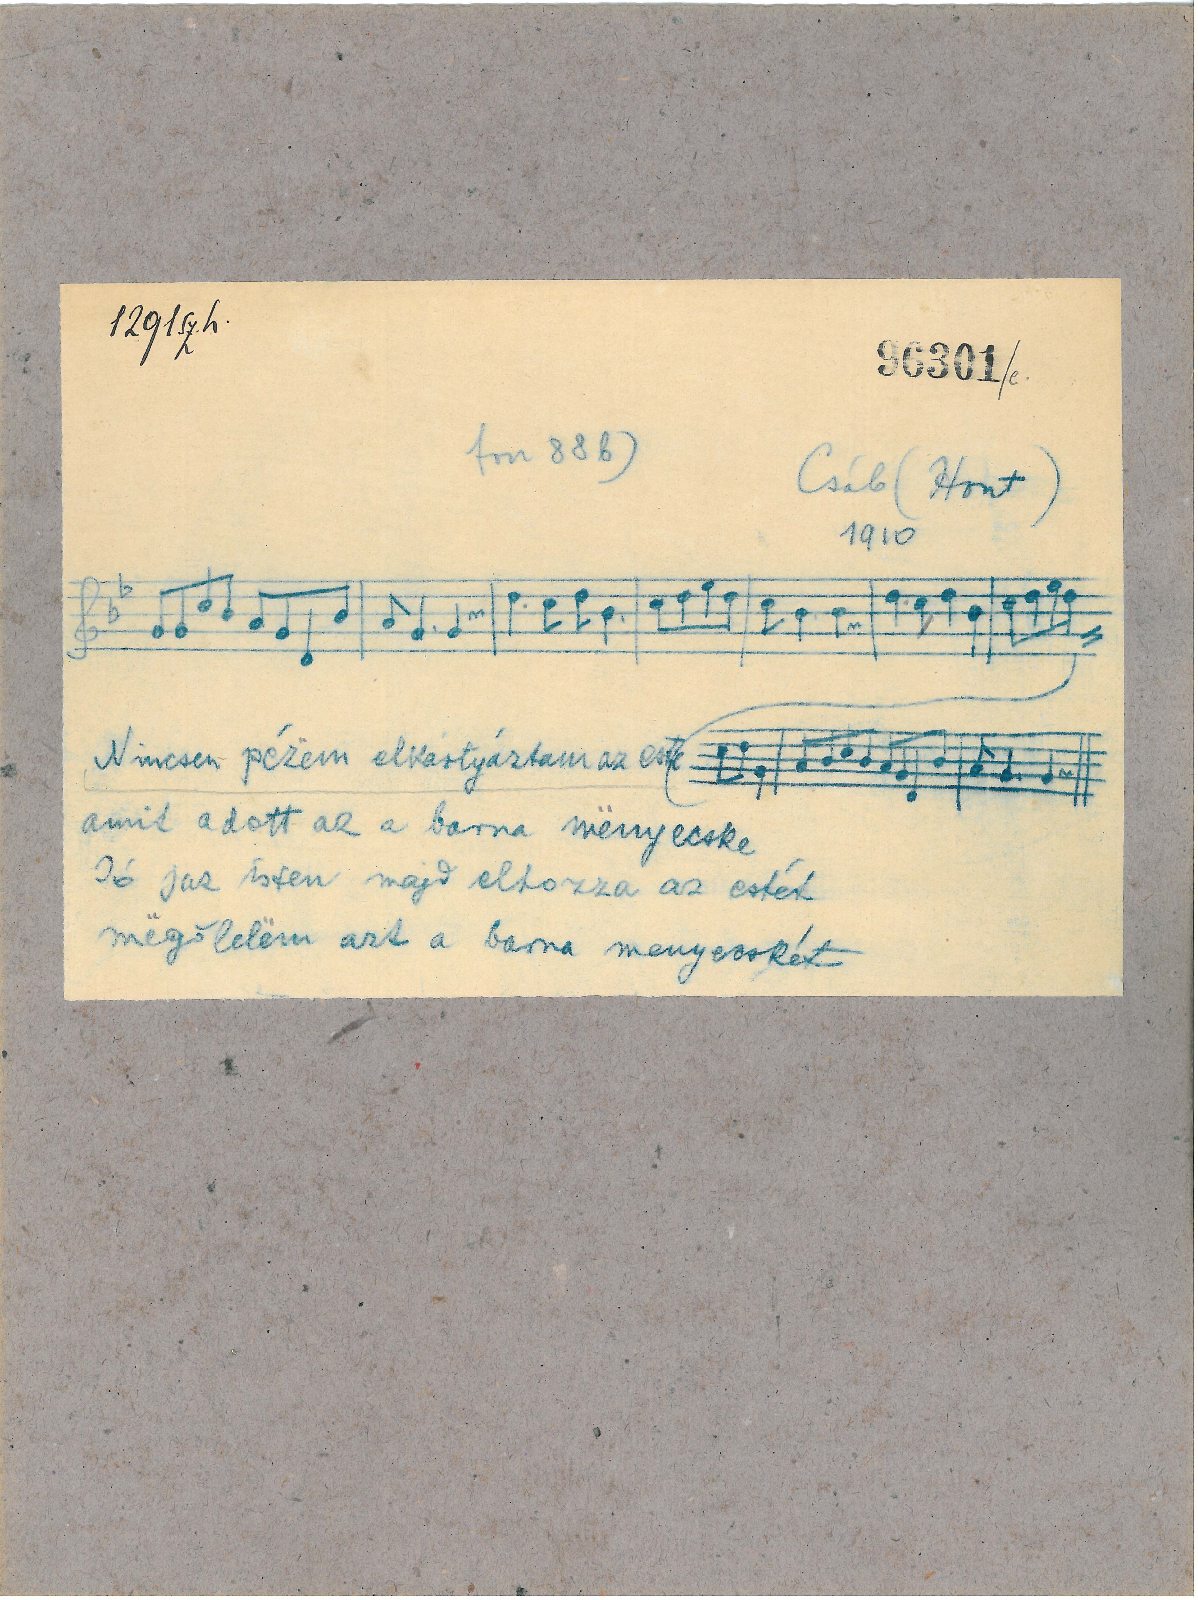 1291
96301/e.
fon 88b)
Csáb (Hont)
1910
Nincsen pézëm elkástyáztam az este
amit adott az a barna mënyecske
Jó jaz isten majd elhozza az estét
mëgölelëm azt a barna menyecskét